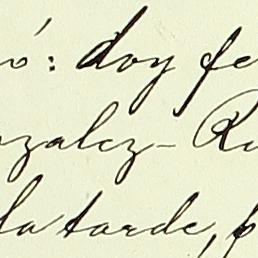 ó: doy fe
nzalez - Ru
la tarde, p